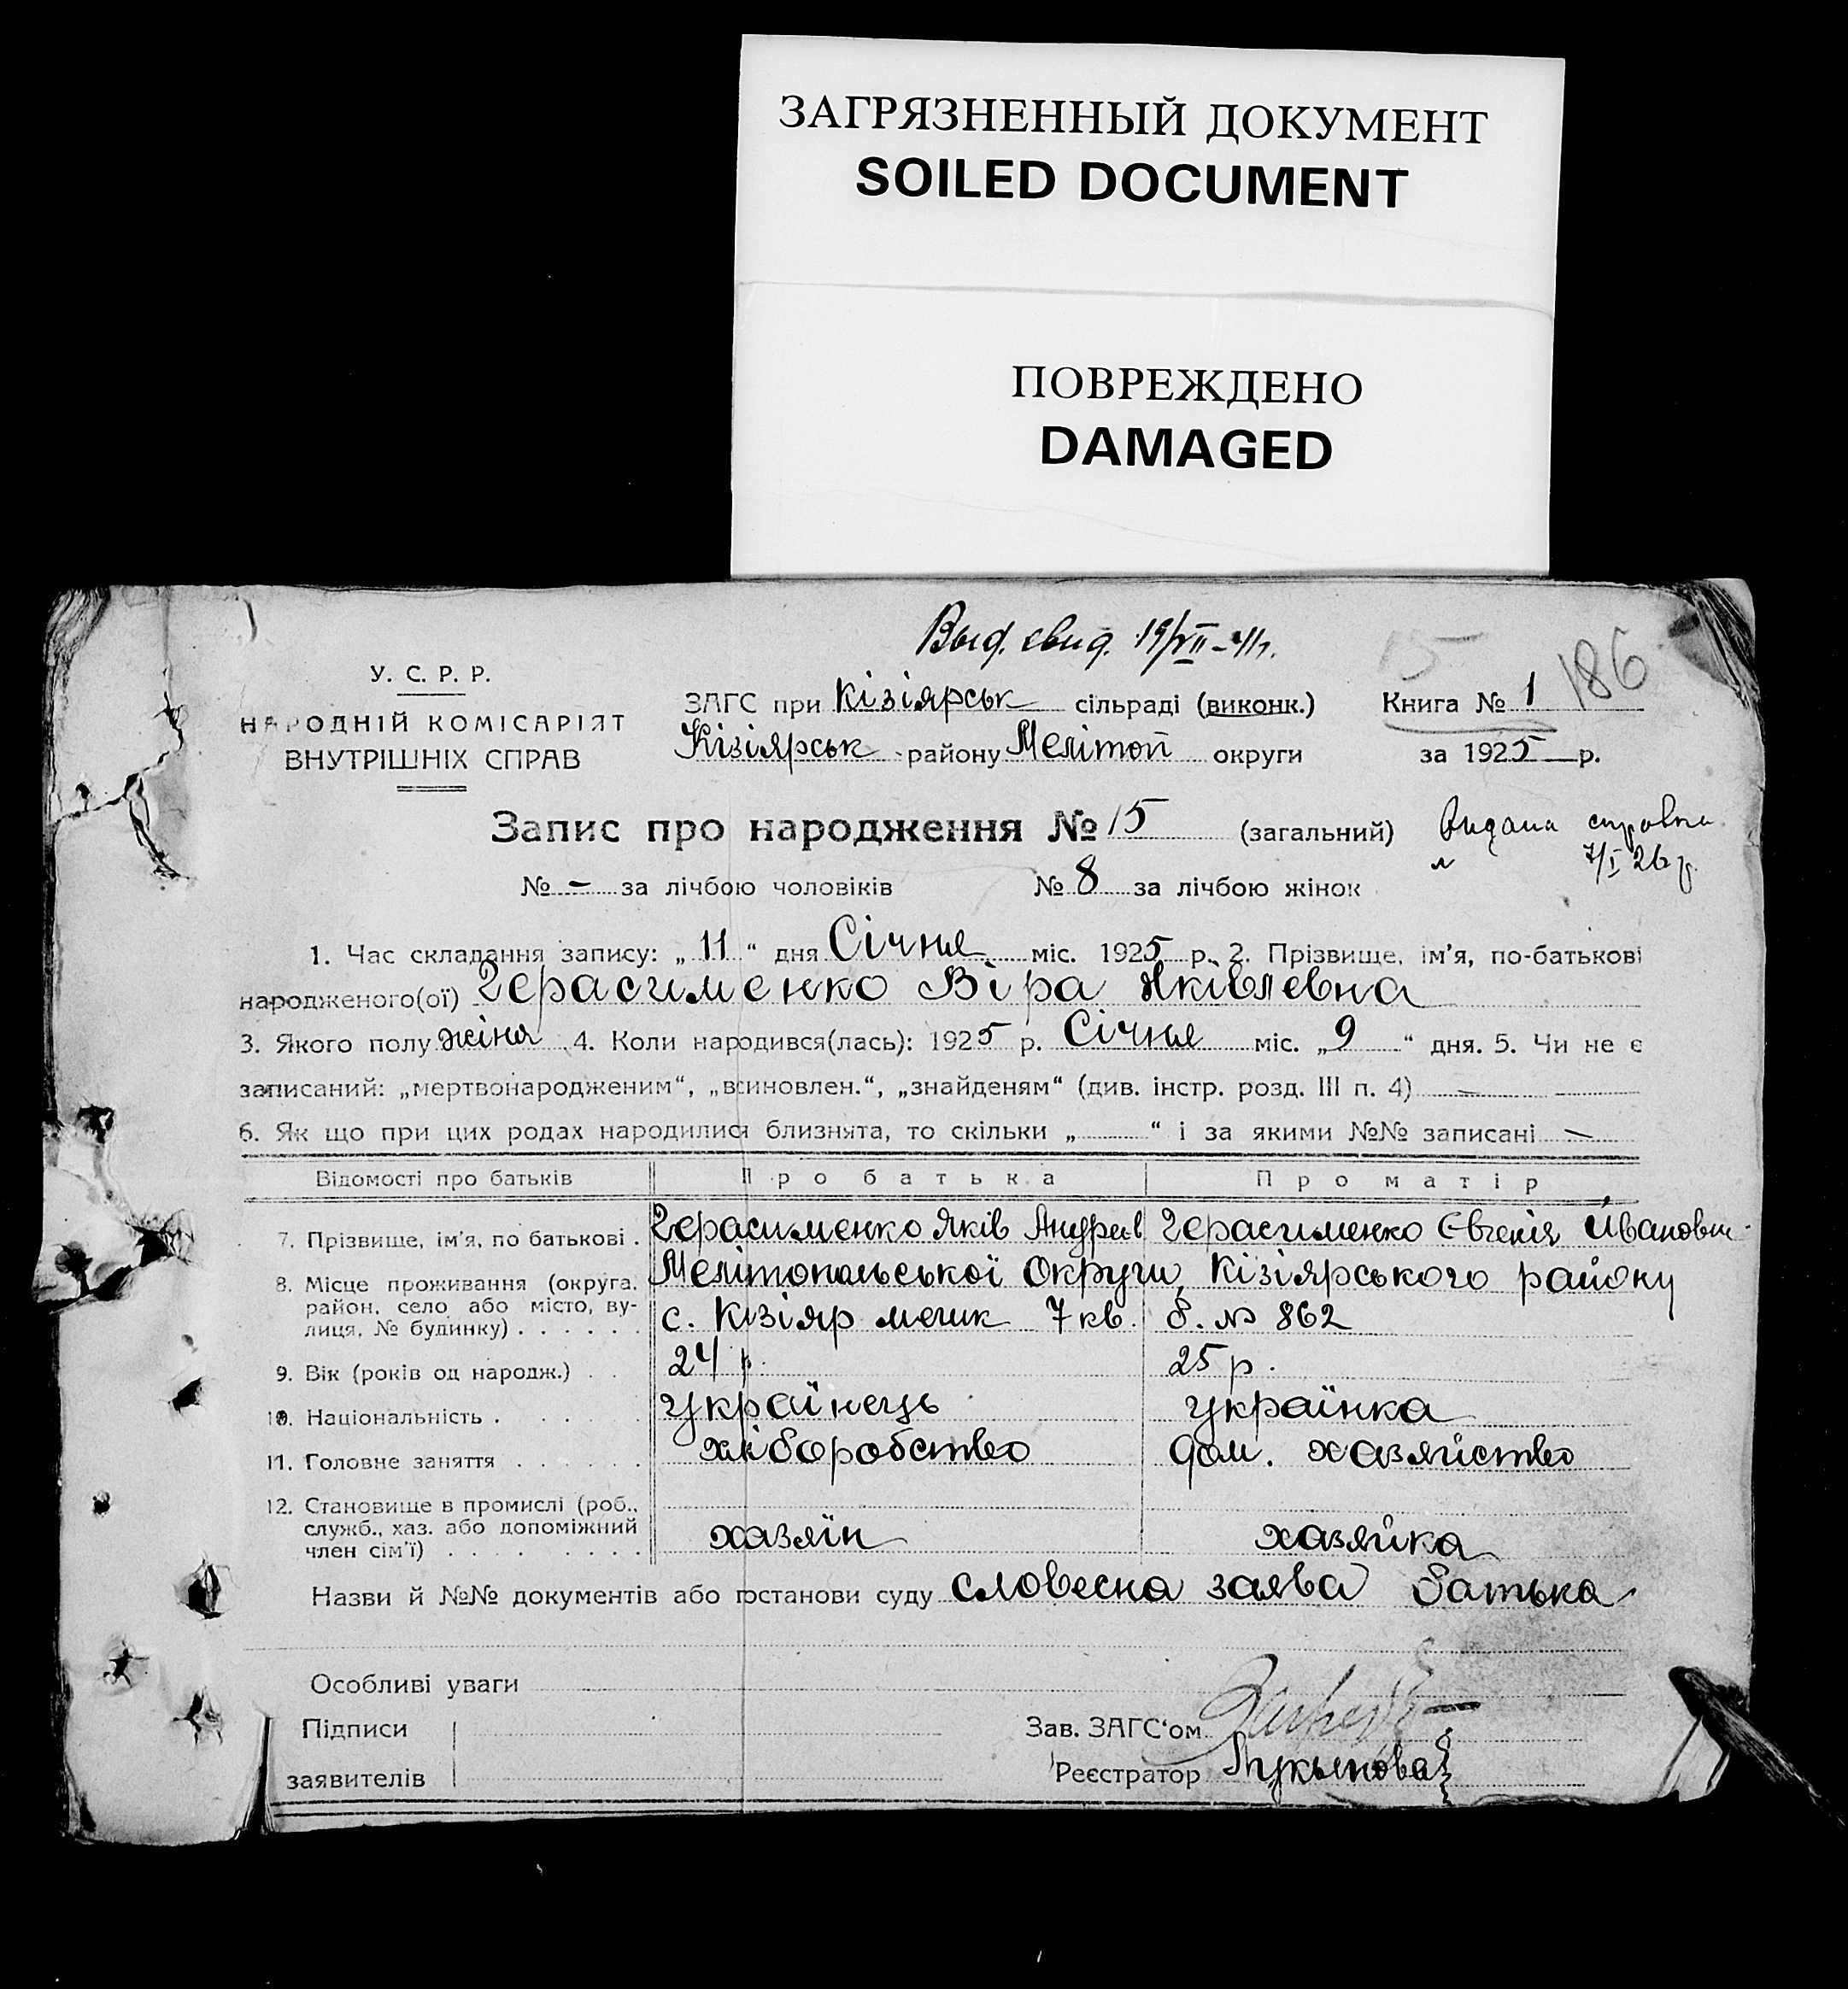 ЗАГРЯЗНЕННЫЙ ДОКУМЕНТ
SOILED DOCUMENT
ПОВРЕЖДЕНО
DAMAGED
Выд. свид. 19/VII-41г.
15 186
У. С. Р. Р.
НАРОДНІЙ КОМІСАРІЯТ
ВНУТРІШНІХ СПРАВ
ЗАГС при Кізіярськ сільраді (виконк.) Книга № 1
Кізіярськ району Меліто́п округи за 1925 р.
Запис про народження № 15 (загальний)
Видана
7/I 26 р.
№ - за лічбою чоловіків № 8 за лічбою жінок
1. Час складання запису: „ 11 “ дня Січня міс. 1925 р. 2. Прізвище, ім’я, по-батькові
народженого(ої) Герасименко Віра Яківлевна
3. Якого полу жіноч 4. Коли народився(лась): 1925 р. Січня міс. „ 9 “ дня. 5. Чи не є
записаний: „мертвонародженим“, „всиновлен.“, „знайденям“ (див. інстр. розд. III п. 4) —
6. Як що при цих родах народилися близнята, то скільки „ “ і за якими №№ записані —
Відомості про батьків Про батька Про матір
7. Прізвище, ім’я, по батькові . Герасименко Яків Андреев Герасименко Євгенія Ивановн-
8. Місце проживання (округа, район, село або місто, вулиця, № будинку) . . . . . .
Мелітопольської Округи, Кізіярського району
с. Кізіяр 7 кв. б. № 862
9. Вік (років од народж.) . . 24 р. 25 р.
10. Національність . . . . українець українка
11. Головне заняття . . . . . . хліборобство дом. хазяйство
12. Становище в промислі (роб., служб., хаз. або допоміжний член сім’ї) . . . . . . . . хазяїн хазяйка
Назви й №№ документів або постанови суду словесна заява батька
Особливі уваги
Підписи
заявителів
Зав. ЗАГС‘ом
Реєстратор Лукьянова